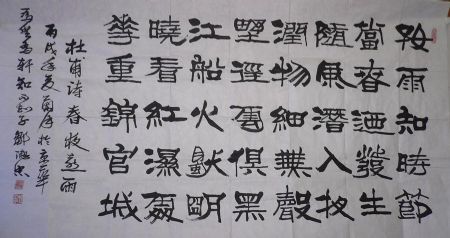 好雨知時節
當春迺發生
隨風潛入夜
潤物細無聲
野徑雲俱黑
江船火獨明
曉看紅濕處
華重錦官城
杜甫诗春夜喜雨
丙戌年夏月於京華
軒知